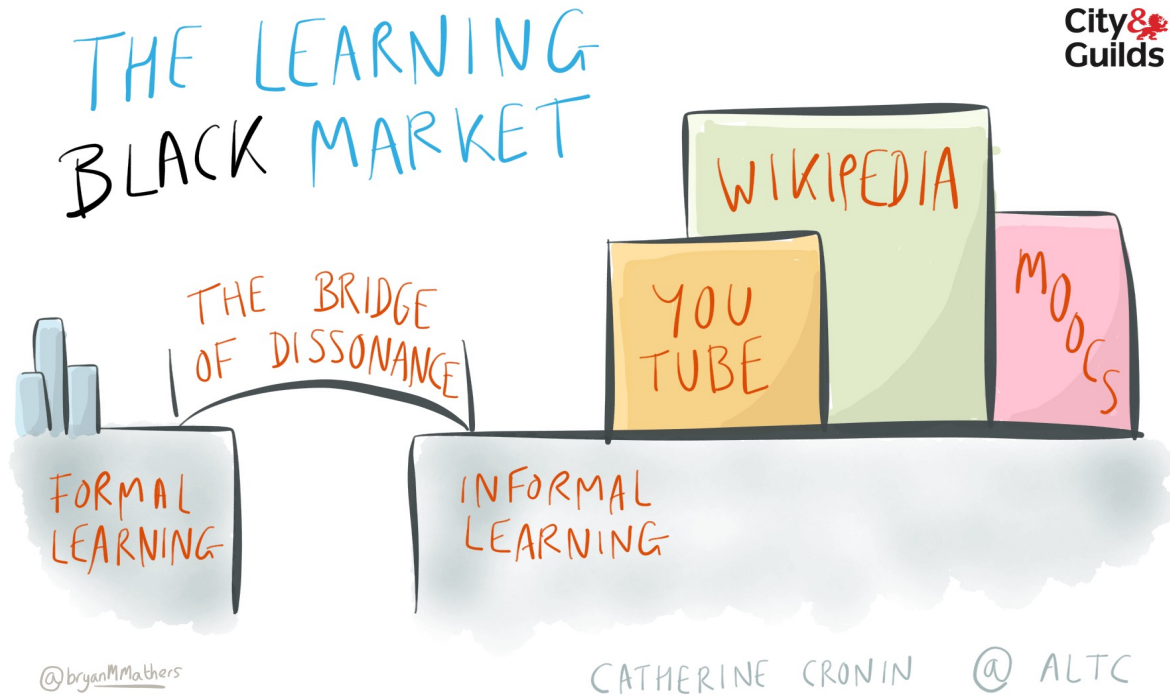 THE LEARNING
BLACK MARKET
City&
Guilds
THE BRIDGE
OF DISSONANCE
WIKIPEDIA
YOU
TUBE
MOOCS
FORMAL
LEARNING
INFORMAL
LEARNING
@bryanMMathers
CATHERINE CRONIN @ ALTC